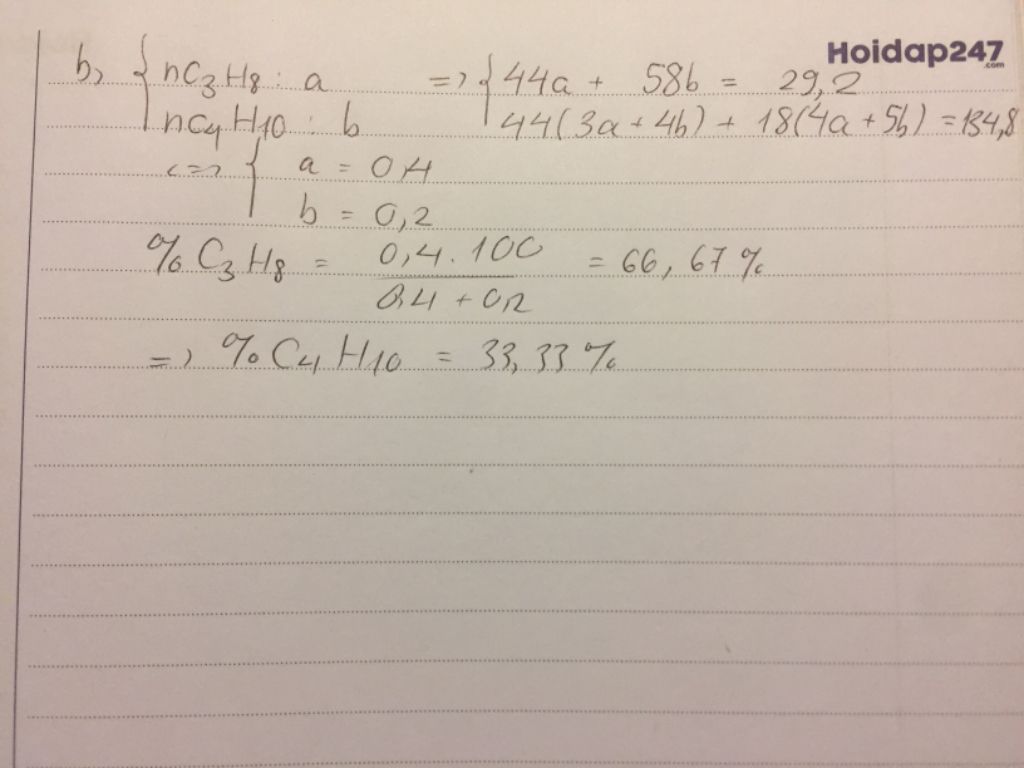 Hoidap247
.com
b, { nC3H8 : a => { 44a + 58b = 29,2
nC4H10 : b 44(3a + 4b) + 18(4a + 5b) = 134,8
<=> { a = 0,4
b = 0,2
% C3H8 = 0,4 . 100 / 0,4 + 0,2 = 66,67 %
=> % C4H10 = 33,33 %